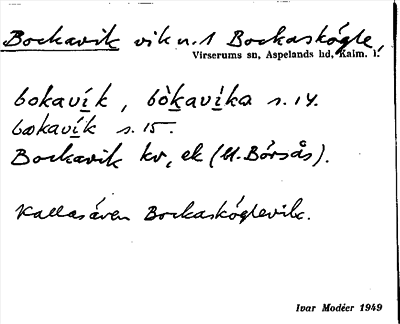 Bockavik vik u. 1 Bockaskögle,
Virserums sn, Aspelands hd, Kalm. l.
bokavík, bòkavika s. 14.
bokavík s. 15.
Bockavik kv, ek (U. Börsås).
Kallas även Bockasköglevik.
Ivar Modéer 1949